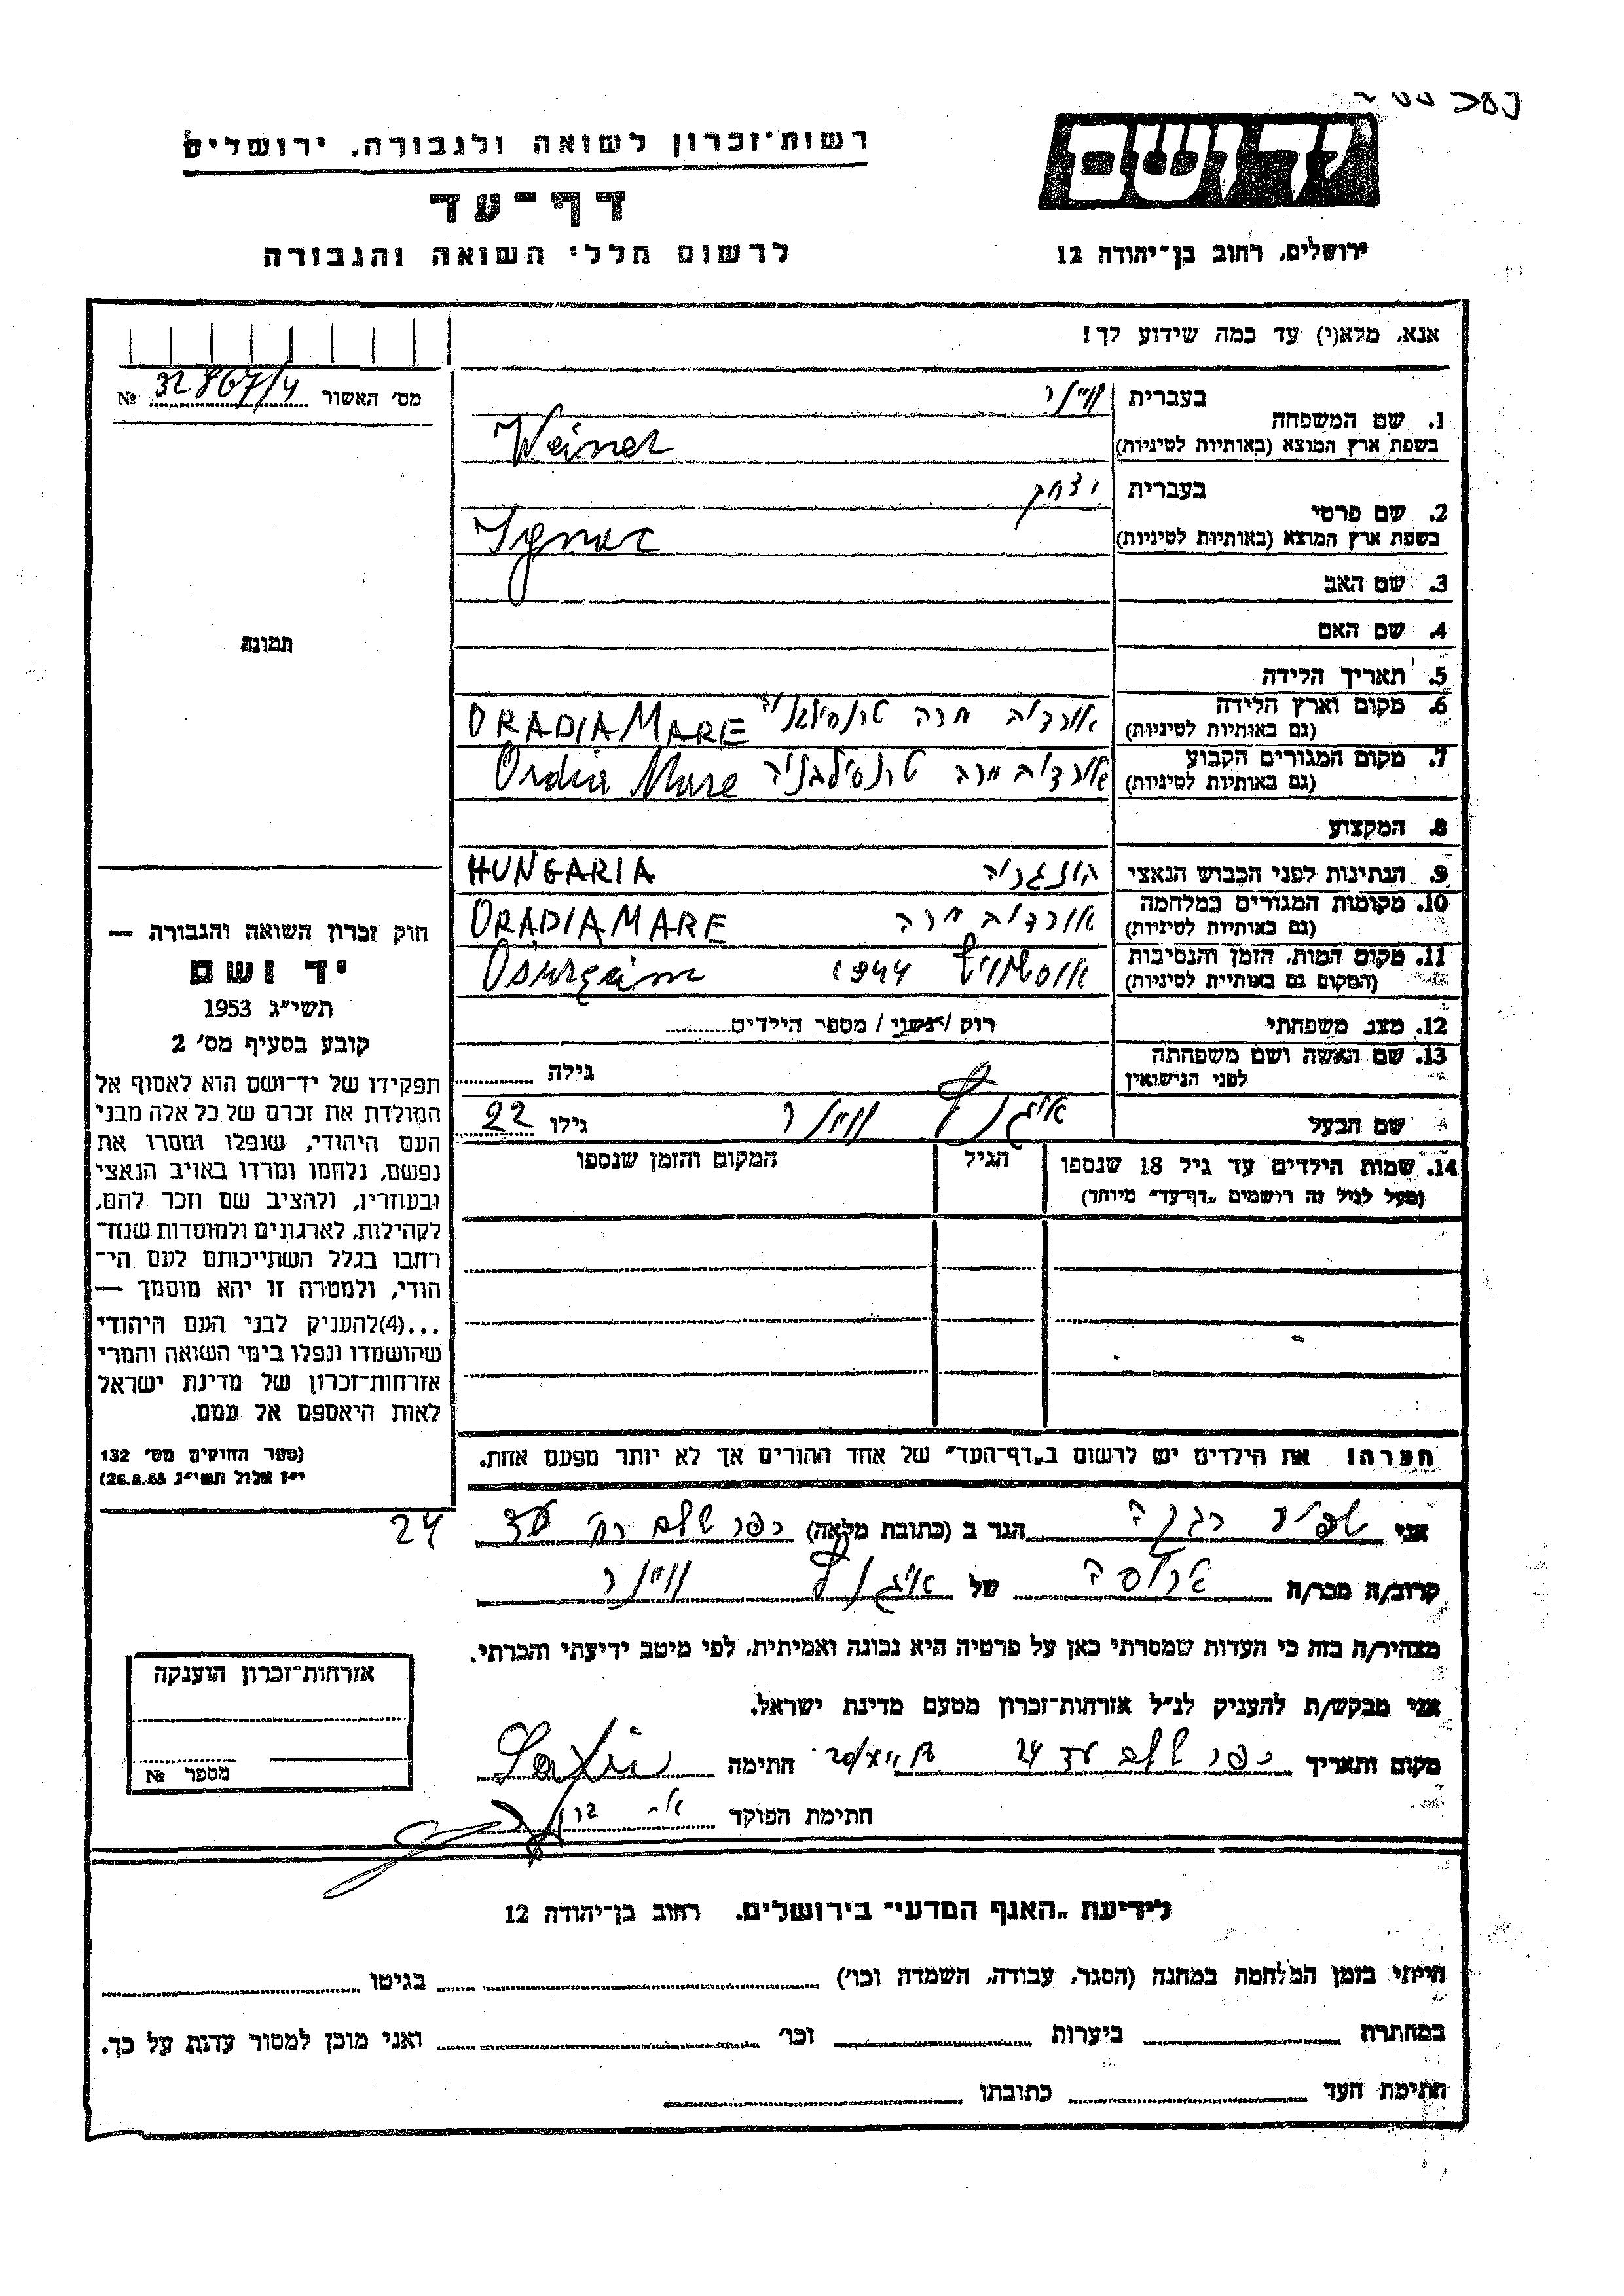 רשות־זכרון לשואה ולגבורה, ירושלים
יד ושם
דף־עד
לרשום חללי השואה והגבורה
ירושלים, רחוב בן־יהודה 12
אנא, מלא(י) עד כמה שידוע לך!
מס׳ האשור № 32867/4
1. שם המשפחה
בעברית ויינר
בשפת ארץ המוצא (באותיות לטיניות) Weiner
2. שם פרטי
בעברית יצחק
בשפת ארץ המוצא (באותיות לטיניות) Ignac
3. שם האב
4. שם האם
5. תאריך הלידה
6. מקום וארץ הלידה אורדיה מרה טרנסילבניה ORADIA MARE
(גם באותיות לטיניות)
7. מקום המגורים הקבוע אורדיה מרה טרנסילבניה Ordia Mare
(גם באותיות לטיניות)
8. המקצוע
9. הנתינות לפני הכבוש הנאצי הונגריה HUNGARIA
10. מקומות המגורים במלחמה אורדיה מרה ORADIA MARE
(גם באותיות לטיניות)
11. מקום המות, הזמן והנסיבות אושוויץ 1944
(המקום גם באותיית לטיניות)
12. מצב משפחתי רוק / נשוי / מספר הילדים
13. שם האשה ושם משפחתה
לפני הנישואין גילה
שם הבעל ויינר גילו 22
14. שמות הילדים עד גיל 18 שנספו הגיל המקום והזמן שנספו
(מעל לגיל זה רושמים „דף־עד״ מיוחד)
חערה! את הילדים יש לרשום ב„דף־העד״ של אחד ההורים אך לא יותר מפעם אחת.
תמונה
חוק זכרון השואה והגבורה —
יד ושם
תשי״ג 1953
קובע בסעיף מס׳ 2
תפקידו של יד־ושם הוא לאסוף אל
המולדת את זכרם של כל אלה מבני
העם היהודי, שנפלו ומסרו את
נפשם, נלחמו ומרדו באויב הנאצי
ובעוזריו, ולהציב שם וזכר להם,
לקהילות, לארגונים ולמוסדות שנח־
רחבו בגלל השתייכותם לעם הי־
הודי, ולמטרה זו יהא מוסמך —
...(4)להעניק לבני העם היהודי
שהושמדו ונפלו בימי השואה והמרי
אזרחות־זכרון של מדינת ישראל
לאות היאספם אל עמם.
(ספר החוקים מס׳ 132
י״ז אלול תשי״ג 28.8.53)
אני הגר ב (כתובת מלאה) כפר שלם 24
קרוב/ה מכר/ה של ויינר
מצהיר/ה בזה כי העדות שמסרתי כאן על פרטיה היא נכונה ואמיתית, לפי מיטב ידיעתי והכרתי.
אני מבקש/ת להעניק לנ״ל אזרחות־זכרון מטעם מדינת ישראל.
מקום ותאריך כפר שלם 24 חתימה
חתימת הפוקד
אזרחות־זכרון הוענקה
מספר №
לידיעת „האגף המדעי״ בירושלים. רחוב בן־יהודה 12
הייתי בזמן המלחמה במחנה (הסגר, עבודה, השמדה וכו׳) בגיטו
במחתרת ביערות וכו׳ ואני מוכן למסור עדות על כך.
חתימת העד כתובתו